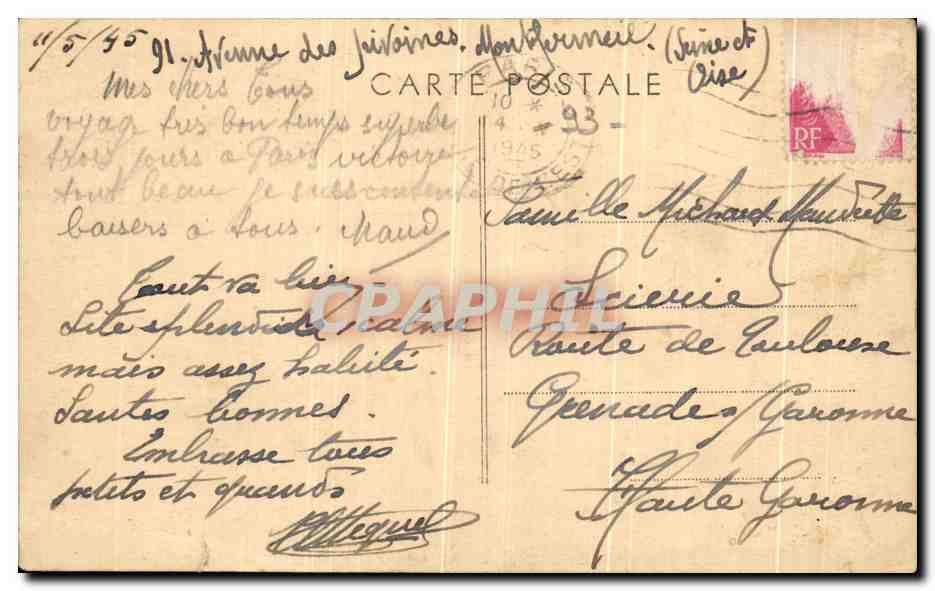 11/5/45
91. Avenue des pivoines. Montfermeil. (Seine et
Oise)
CARTE POSTALE
Mes chers tous
voyage très bon temps superbe
trois jours à Paris victoire
tout beau je suis contente
baisers à tous. Maud
Tout va bien
Site splendide calme
mais assez habité.
Santés bonnes.
Embrasse tous
petits et grands
PARIS
10 *
4
1945
- 93 -
RF
Famille Michaud Maudette
Scierie
Route de Toulouse
Grenade s/Garonne
Haute Garonne
CPAPHIL